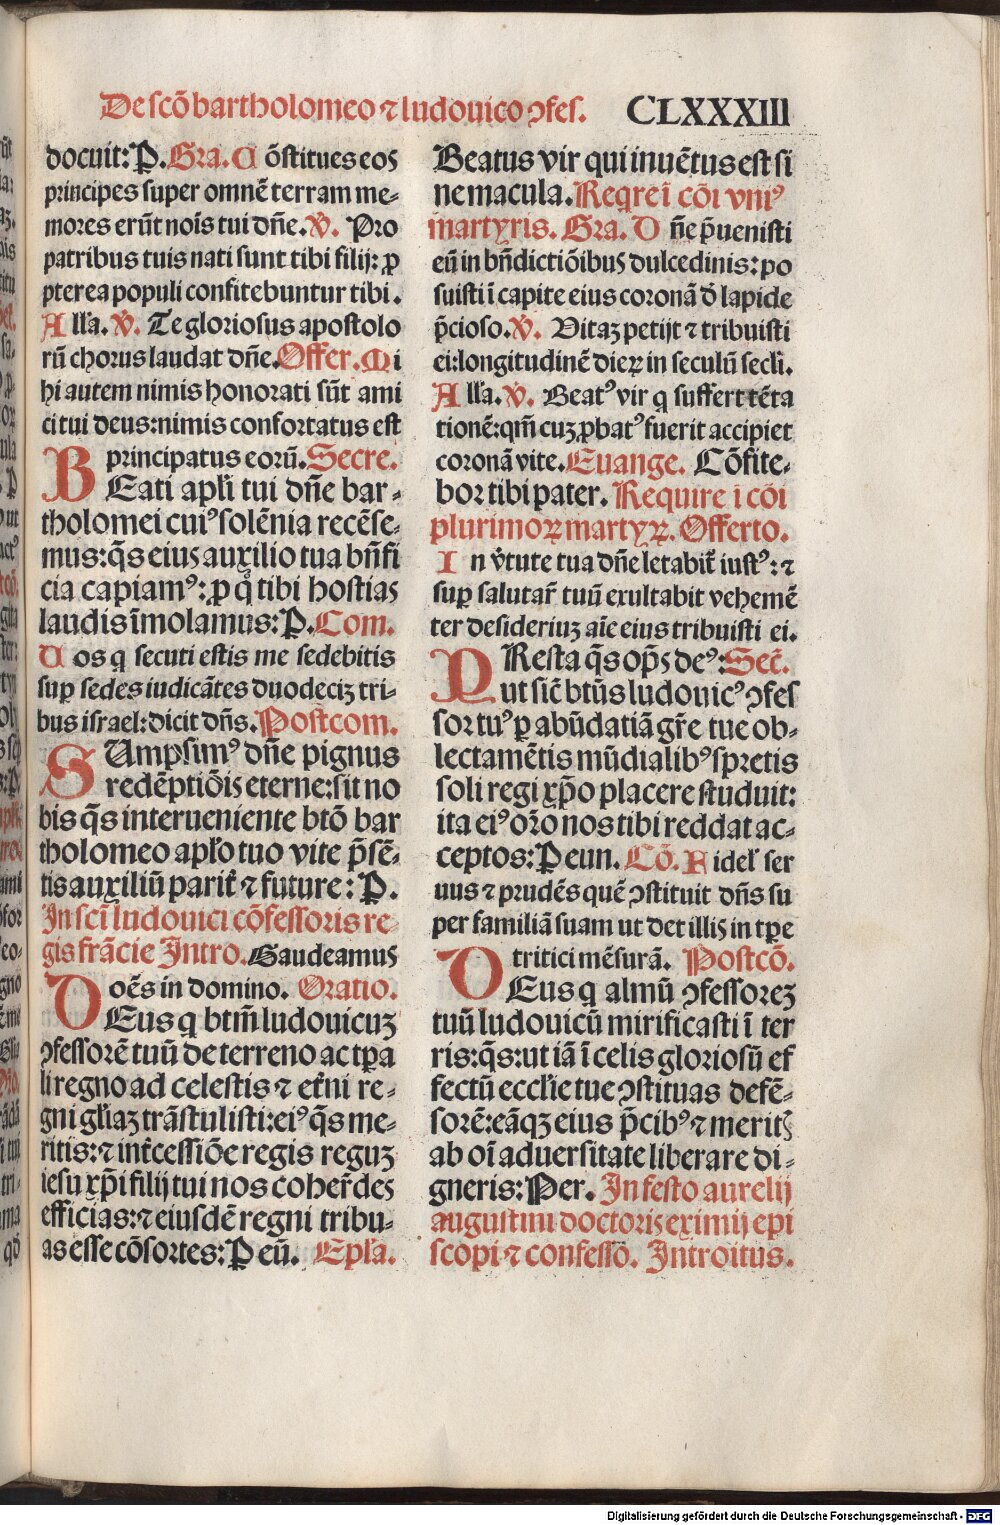 De scō bartholomeo ⁊ ludouico ꝯfes. CLXXXIII
docuit: P. Gra. C ōstitues eos
principes super omnē terram me-
mores erūt nois tui dn̄e. V̄. Pro
patribus tuis nati sunt tibi filij: ꝓ
pterea populi confitebuntur tibi.
A ll'a. V̄. Te gloriosus apostolo
rū chorus laudat dn̄e. Offer. Mi
hi autem nimis honorati sūt ami
ci tui deus: nimis confortatus est
principatus eorū. Secre.
BEati apl'i tui dn̄e bar-
tholomei cuiꝰ solēnia recēse-
mus: q̄s eius auxilio tua bn̄fi
cia capiamꝰ: ꝓ q̊ tibi hostias
laudis īmolamus: P. Com.
U os q secuti estis me sedebitis
suꝑ sedes iudicātes duodeciꝫ tri-
bus israel: dicit dn̄s. Postcom.
SUmpsimꝰ dn̄e pignus
redēptiōis eterne: sit no
bis q̄s interueniente btō bar
tholomeo apl'o tuo vite p̄sē-
tis auxiliū parit̄ ⁊ future: P.
In scī ludouici cōfessoris re
gis frācie Intro. Gaudeamus
oēs in domino. Oratio.
DEus q btm̄ ludouicuꝫ
ꝯfessorē tuū de terreno ac tꝑa
li regno ad celestis ⁊ et̄ni re-
gni gl'iaꝫ trāstulisti: eiꝰ q̄s me-
ritis: ⁊ int̄cessiōe regis reguꝫ
iesu xp̄i filij tui nos coher̄des
efficias: ⁊ eiusdē regni tribu-
as esse cōsortes: P eū. Epl'a.
Beatus vir qui inuētus est si
ne macula. Reqre ī cōi vniꝰ
martyris. Gra. D n̄e p̄uenisti
eū in bn̄dictiōibus dulcedinis: po
suisti ī capite eius coronā d̄ lapide
p̄cioso. V̄. Vitaꝫ petijt ⁊ tribuisti
ei: longitudinē dieꝝ in seculū secl'i.
A ll'a. V̄. Beatꝰ vir q suffert tēta
tionē: qm̄ cuꝫ ꝓbatꝰ fuerit accipiet
coronā vite. Euange. Cōfite-
bor tibi pater. Require ī cōi
plurimoꝝ martyꝝ. Offerto.
I n v̄tute tua dn̄e letabit̄ iustꝰ: ⁊
suꝑ salutar̄ tuū exultabit vehemē
ter desideriuꝫ aīe eius tribuisti ei.
PResta q̄s op̄s deꝰ: Sec̄.
ut sic̄ btūs ludouicꝰ ꝯfes
sor tuꝰ ꝑ abūdatiā gr̄e tue ob-
lectamētis mūdialibꝰ spretis
soli regi xp̄o placere studuit:
ita eiꝰ or̄o nos tibi reddat ac-
ceptos: P eun. Cō. F idel' ser
uus ⁊ prudēs quē ꝯstituit dn̄s su
per familiā suam ut det illis in tꝑe
tritici mēsurā. Postcō.
DEus q almū ꝯfessoreꝫ
tuū ludouicū mirificasti ī ter
ris: q̄s: ut iā ī celis gloriosū ef
fectū eccl'ie tue ꝯstituas defē-
sorē: eāqꝫ eius p̄cibꝰ ⁊ meritꝭ
ab oī aduersitate liberare di-
gneris: Per. In festo aurelij
augustini doctoris eximij epi
scopi ⁊ confesso. Introitus.
Digitalisierung gefördert durch die Deutsche Forschungsgemeinschaft - DFG